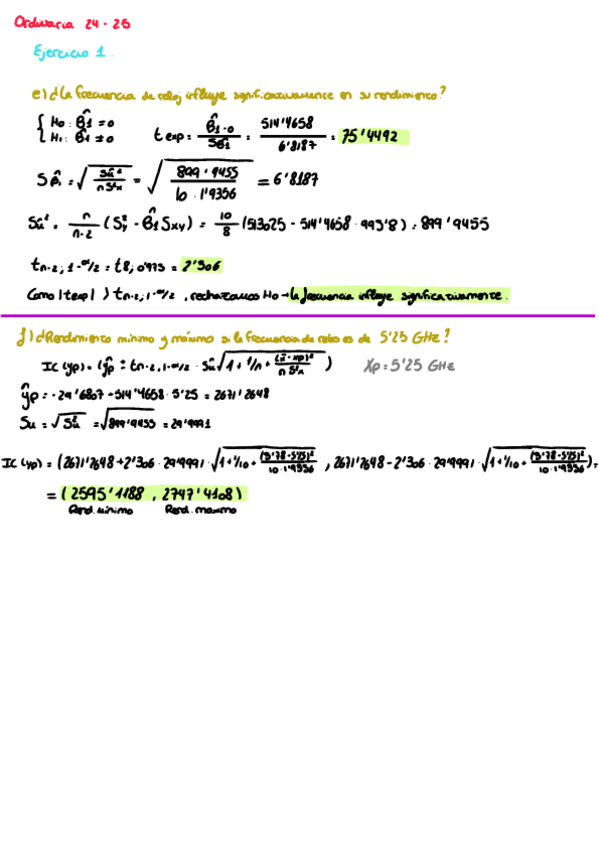 Ordinaria 24-25
Ejercicio 1.
e) ¿La frecuencia de reloj influye significativamente en su rendimiento?
{ H₀: β̂₁ = 0
H₁: β̂₁ ≠ 0
t exp = (β̂₁ - 0) / Sβ̂₁ = 514'4658 / 6'8187 = 75'4492
Sβ̂₁ = √(Sû² / n S²x) = √(899'9455 / 10·1'9356) = 6'8187
Sû² = n/(n-2) (S²y - β̂₁ Sxy) = 10/8 (513025 - 514'4658 · 995'8) = 899'9455
t n-2, 1-α/2 = t 8, 0'975 = 2'306
Como |t exp| > t n-2, 1-α/2, rechazamos H₀ → la frecuencia influye significativamente.
f) ¿Rendimiento mínimo y máximo si la frecuencia de reloj es de 5'25 GHz?
IC (yp) = (ŷp ± t n-2, 1-α/2 · Sû √(1 + 1/n + (x̄ - xp)² / n S²x)) Xp = 5'25 GHz
ŷp = -29'6807 + 514'4658 · 5'25 = 2671'2648
Su = √Sû² = √899'9455 = 29'9991
IC (yp) = (2671'2648 + 2'306 · 29'9991 · √(1 + 1/10 + (3'78 - 5'25)² / 10·1'9356), 2671'2648 - 2'306 · 29'9991 · √(1 + 1/10 + (3'78 - 5'25)² / 10·1'9356)) =
= (2595'1188, 2747'4108)
Rend. mínimo Rend. maximo